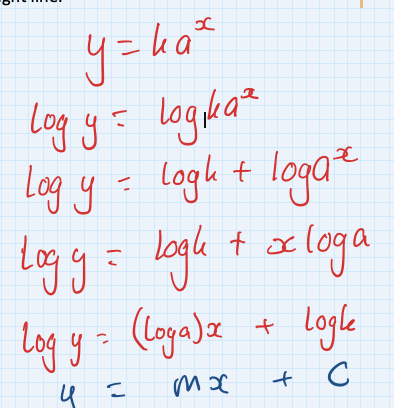 ght line.
y = ka^x
log y = log ka^x
log y = log k + log a^x
log y = log k + x log a
log y = (log a)x + log k
y = mx + c